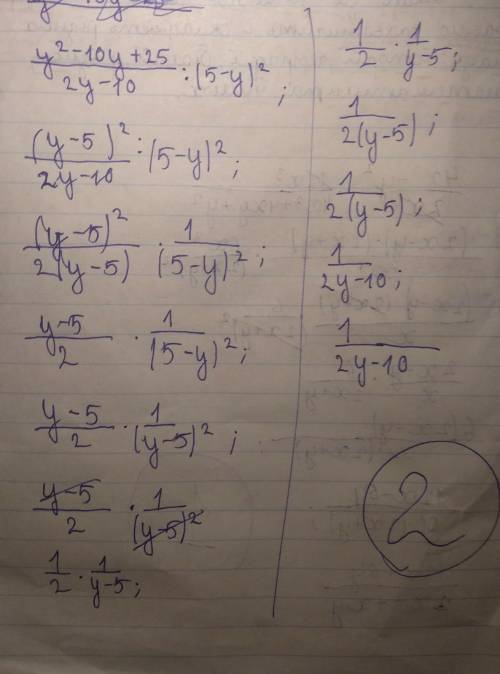 y²-10y+25/2y-10 : (5-y)²;
(y-5)²/2y-10 : (5-y)²;
(y-5)²/2(y-5) · 1/(5-y)²;
y-5/2 · 1/(5-y)²;
y-5/2 · 1/(y-5)²;
y-5/2 · 1/(y-5)²
1/2 · 1/y-5;
1/2 · 1/y-5;
1/2(y-5);
1/2(y-5);
1/2y-10;
1/2y-10
2